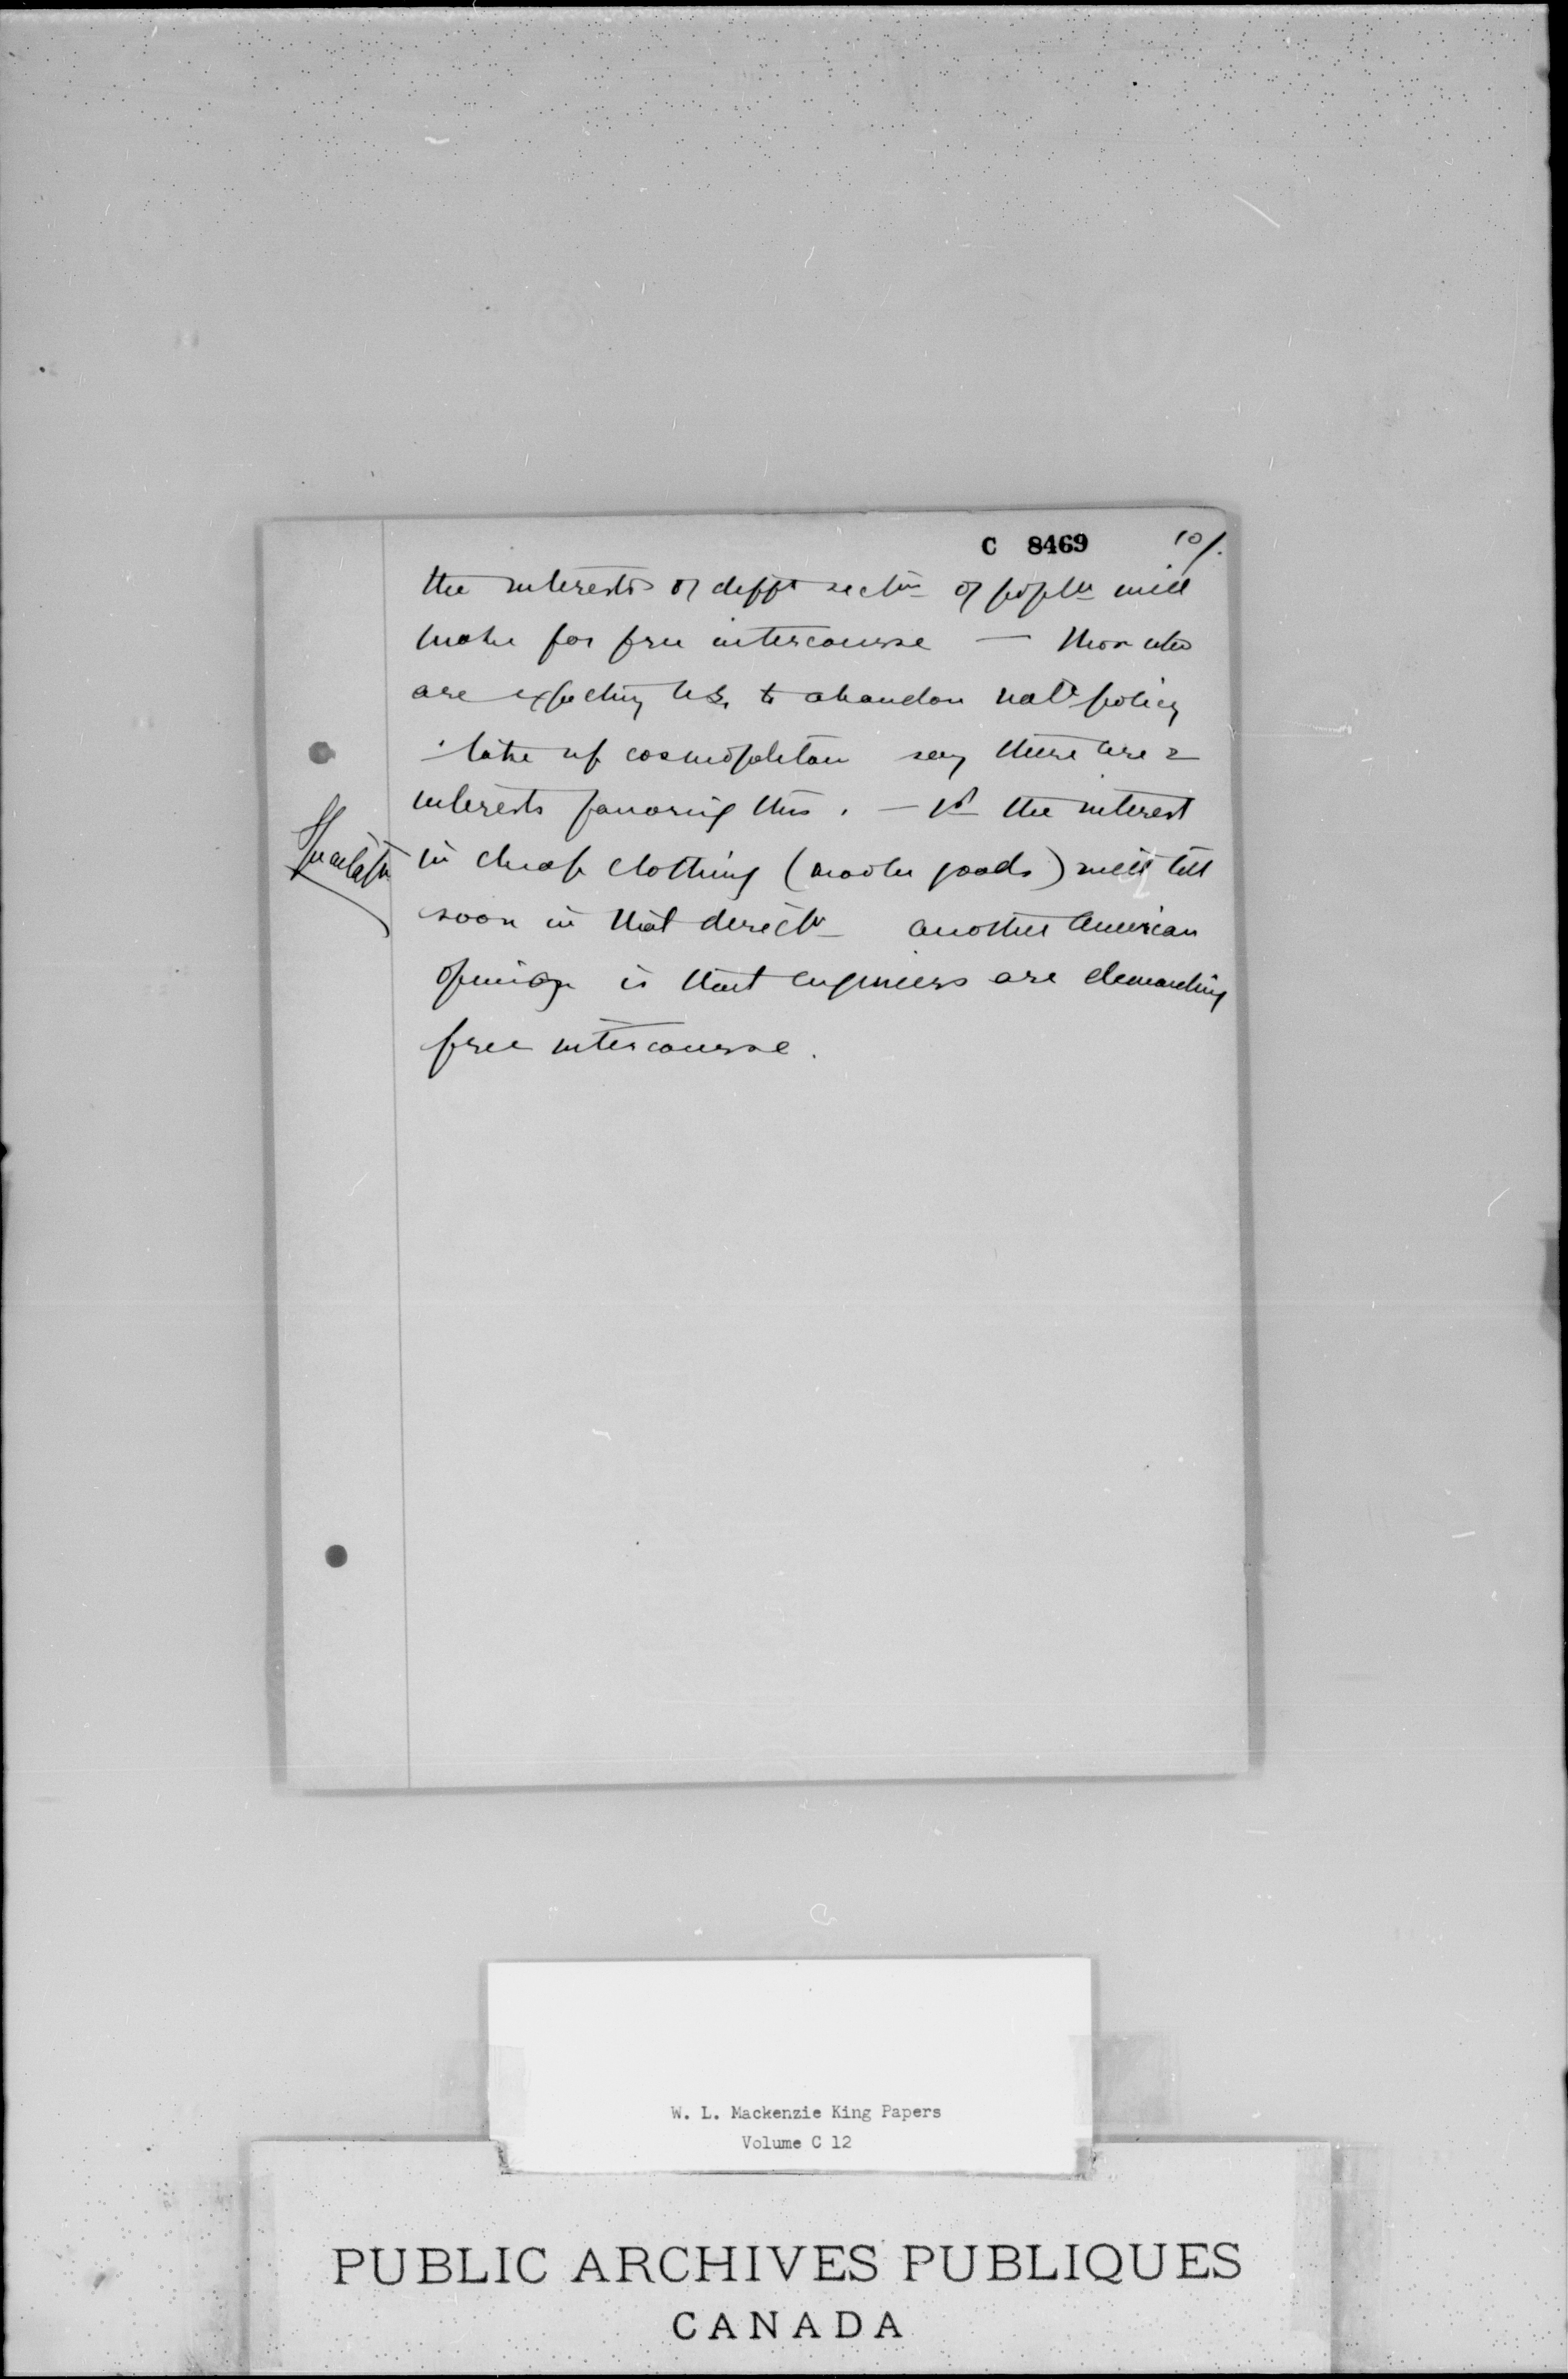 C 8469 10/.
the interests of difft sectn of popltn will
make for free intercourse — those who
are expecting U.S. to abandon natl policy
take up cosmopolitan say there are 2
interests favoring this. — 1st the interest
in cheap clothing (woolen goods) will tell
soon in that directn another American
opinion is that engineers are demanding
free intercourse.
W. L. Mackenzie King Papers
Volume C 12
PUBLIC ARCHIVES PUBLIQUES
CANADA